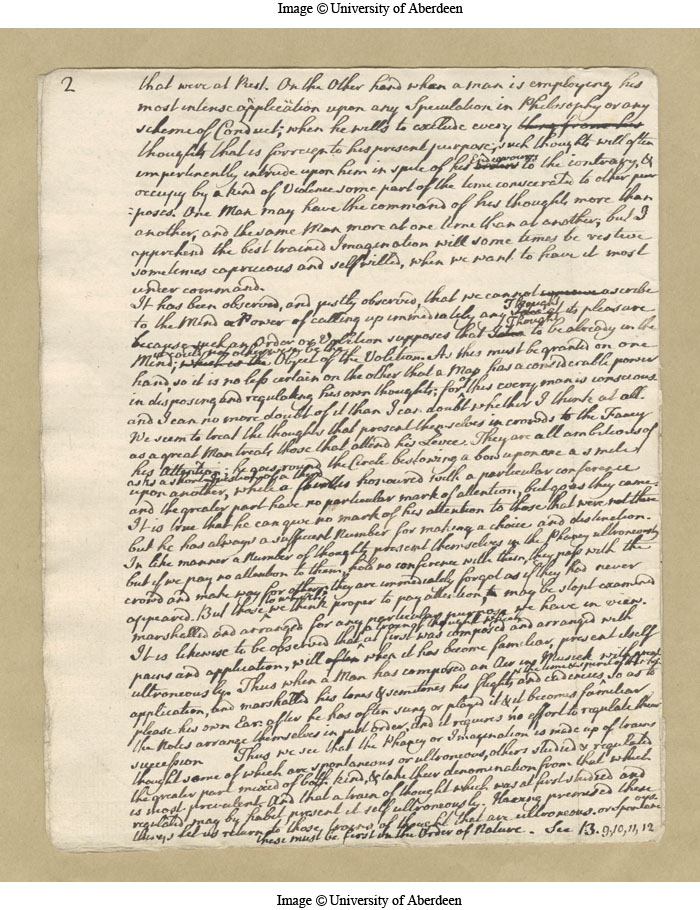 Image © University of Aberdeen
2
that were at Rest. On the Other hand when a man is employing his
most intense application upon any Speculation in Philosophy or any
scheme of Conduct; when he wills to exclude every thing from his
thoughts that is forreign to his present purpose, such thoughts will often
Endeavours
impertinently intrude upon him in spite of his to the contrary, &
occupy by a kind of Violence some part of the time consecrated to other pur
=poses. One Man may have the command of his thoughts more than
another, and the same Man more at one time than at another; but I
apprehend the best trained Imagination will some times be restive
sometimes capricious and self willed, when we want to have it most
under command.
It has been observed, and justly observed, that we cannot ascribe
Thought
to the Mind a Power of calling up immediately any Idea at its pleasure
Thought
because such an Order or Volition supposes that Idea to be already in the
Mind, which is the Object of the Volition. As this must be granted on one
hand, so it is no less certain on the other that a Man has a considerable power
in disposing and regulating his own thoughts. for this every man is conscious
and I can no more doubt of it than I can doubt whether I think at all.
We seem to treat the thoughts that present themselves in crowds to the Fancy
as a great Man treats those that attend his Levee. They are all ambitious of
his Attention; he goes round the Circle bestowing a bow upon one a smile
asks a short question of a third
upon another, while a is honoured with a particular conference
and the greater part have no particular mark of attention, but go as they came.
It is true that he can give no mark of his attention to those that were not there
but he has always a sufficient Number for making a choice and distinction.
In like manner a Number of thoughts present themselves in the Phancy ultroneously
but if we pay no attention to them, hold no conference with them, they pass with the
crowd and make way for others, they are immediately forgot as if they had never
to which
appeared. But those we think proper to pay attention may be stopt examined
marshelled and arranged for any particular purpose we have in view.
a train of thought which
It is likewise to be observed that at first was composed and arranged with
pains and application, will often when it has become familiar, present itself
ultroneously. Thus when a Man has composed an Air in Musick with great
application, and marshalled his tones & sometimes his flights and cadences, so as to
please his own Ear: after he has often sung or playd it & it becomes familiar
the Notes arrange themselves in just order, and it requires no effort to regulate their
succession Thus we see that the Phancy or Imagination is made up of trains
thought some of which are spontaneous or ultroneous, others studied & regulated
the greater part mixed of both kind, & take their denomination from that which
is most prevalent. And that a train of thought which was at first studied and
regulated may by habit present it self ultroneously. Having premised these
things let us return to those trains of thought that are ultroneous or spontane
these must be first in the Order of Nature. See 13. 9, 10, 11, 12
Image © University of Aberdeen